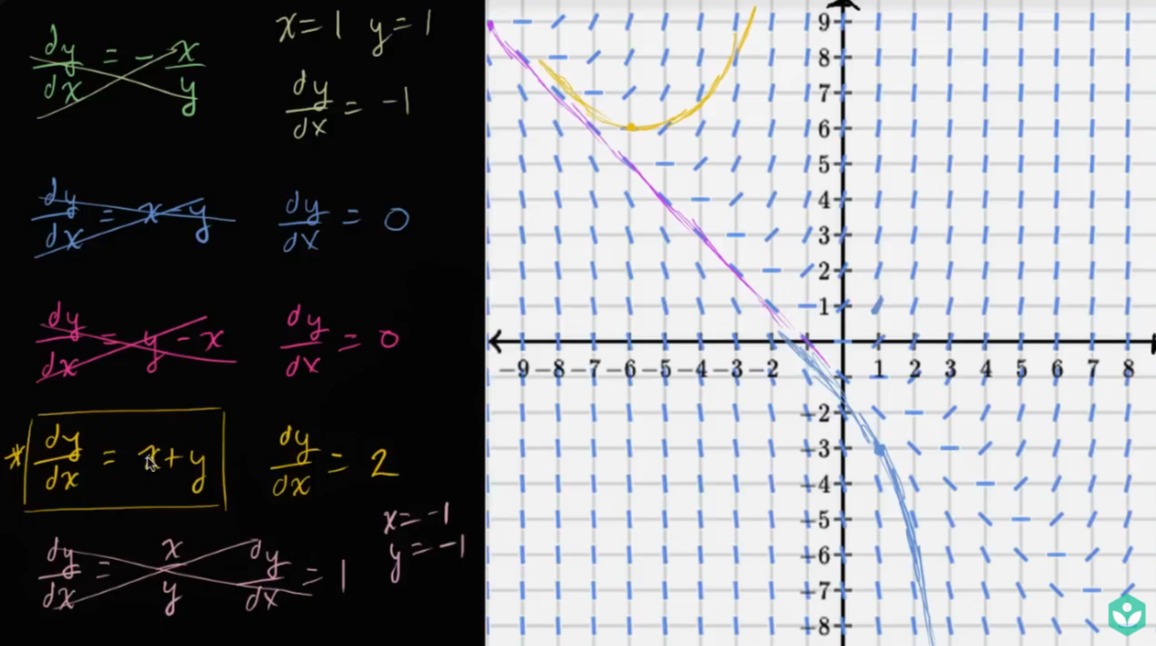 dy/dx = - x/y
x = 1 y = 1
dy/dx = -1
dy/dx = x - y
dy/dx = 0
dy/dx = y - x
dy/dx = 0
* dy/dx = x + y
dy/dx = 2
x = -1
y = -1
dy/dx = x/y
dy/dx = 1
9
8
7
6
5
4
3
2
1
-9 -8 -7 -6 -5 -4 -3 -2 1 2 3 4 5 6 7 8
-2
-3
-4
-5
-6
-7
-8